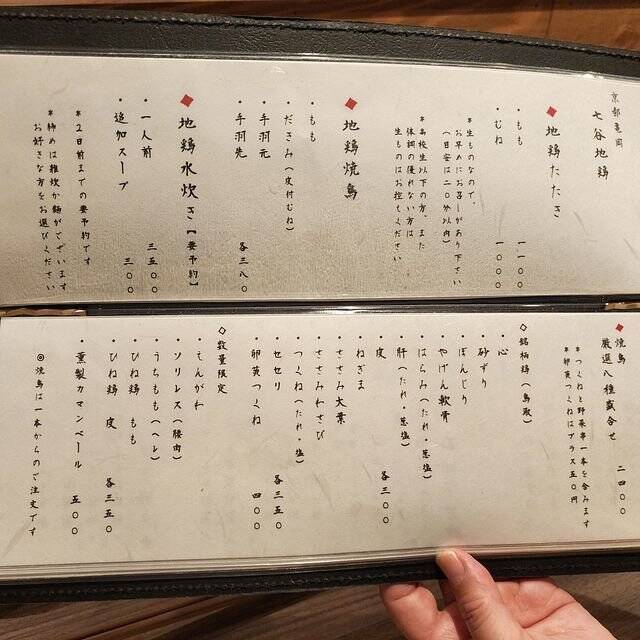 京都亀岡
七谷地鶏
◆地鶏たたき
・もも 一一〇〇
・むね 一〇〇〇
＊生ものなので、
お早めにお召しがあり下さい
(目安は二〇分以内)
＊高校生以下の方、また
体調の優れない方は
生ものはお控えください
◆地鶏焼鳥
・もも
・ださみ(皮付むね)
・手羽元
・手羽先 各三八〇
◆地鶏水炊き【要予約】
・一人前 三五〇〇
・追加スープ 三〇〇
＊２日前までの要予約です
＊締めは雑炊か麺がございます
お好きな方をお選びください
◆焼鳥
厳選八種盛合せ 二四〇〇
＊つくねと野菜串一本を含みます
＊卵黄つくねはプラス五〇円
◇銘柄鶏(鳥取)
・心
・砂ずり
・ぼんじり
・やげん軟骨
・はらみ(たれ・葱塩)
・肝(たれ・葱塩)
・皮 各三〇〇
・ねぎま
・ささみ大葉
・ささみわさび
・つくね(たれ・塩)
・セセリ 各三五〇
・卵黄つくね 四〇〇
◇数量限定
・えんがわ
・ソリレス(腰肉)
・うちもも(ヘレ)
・ひね鶏 もも
・ひね鶏 皮 各三五〇
・燻製カマンベール 五〇〇
◎焼鳥は一本からのご注文です